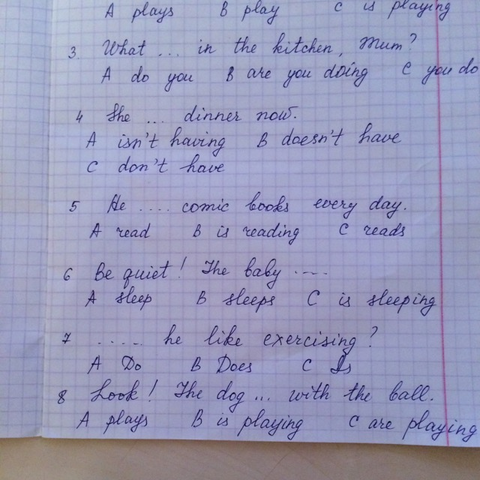 A plays B play C is playing
3 What ... in the kitchen, Mum?
A do you B are you doing C you do
4 She ... dinner now.
A isn't having B doesn't have
C don't have
5 He .... comic books every day.
A read B is reading C reads
6 Be quiet! The baby ....
A sleep B sleeps C is sleeping
7 ..... he like exercising?
A Do B Does C Is
8 Look! The dog ... with the ball.
A plays B is playing C are playing